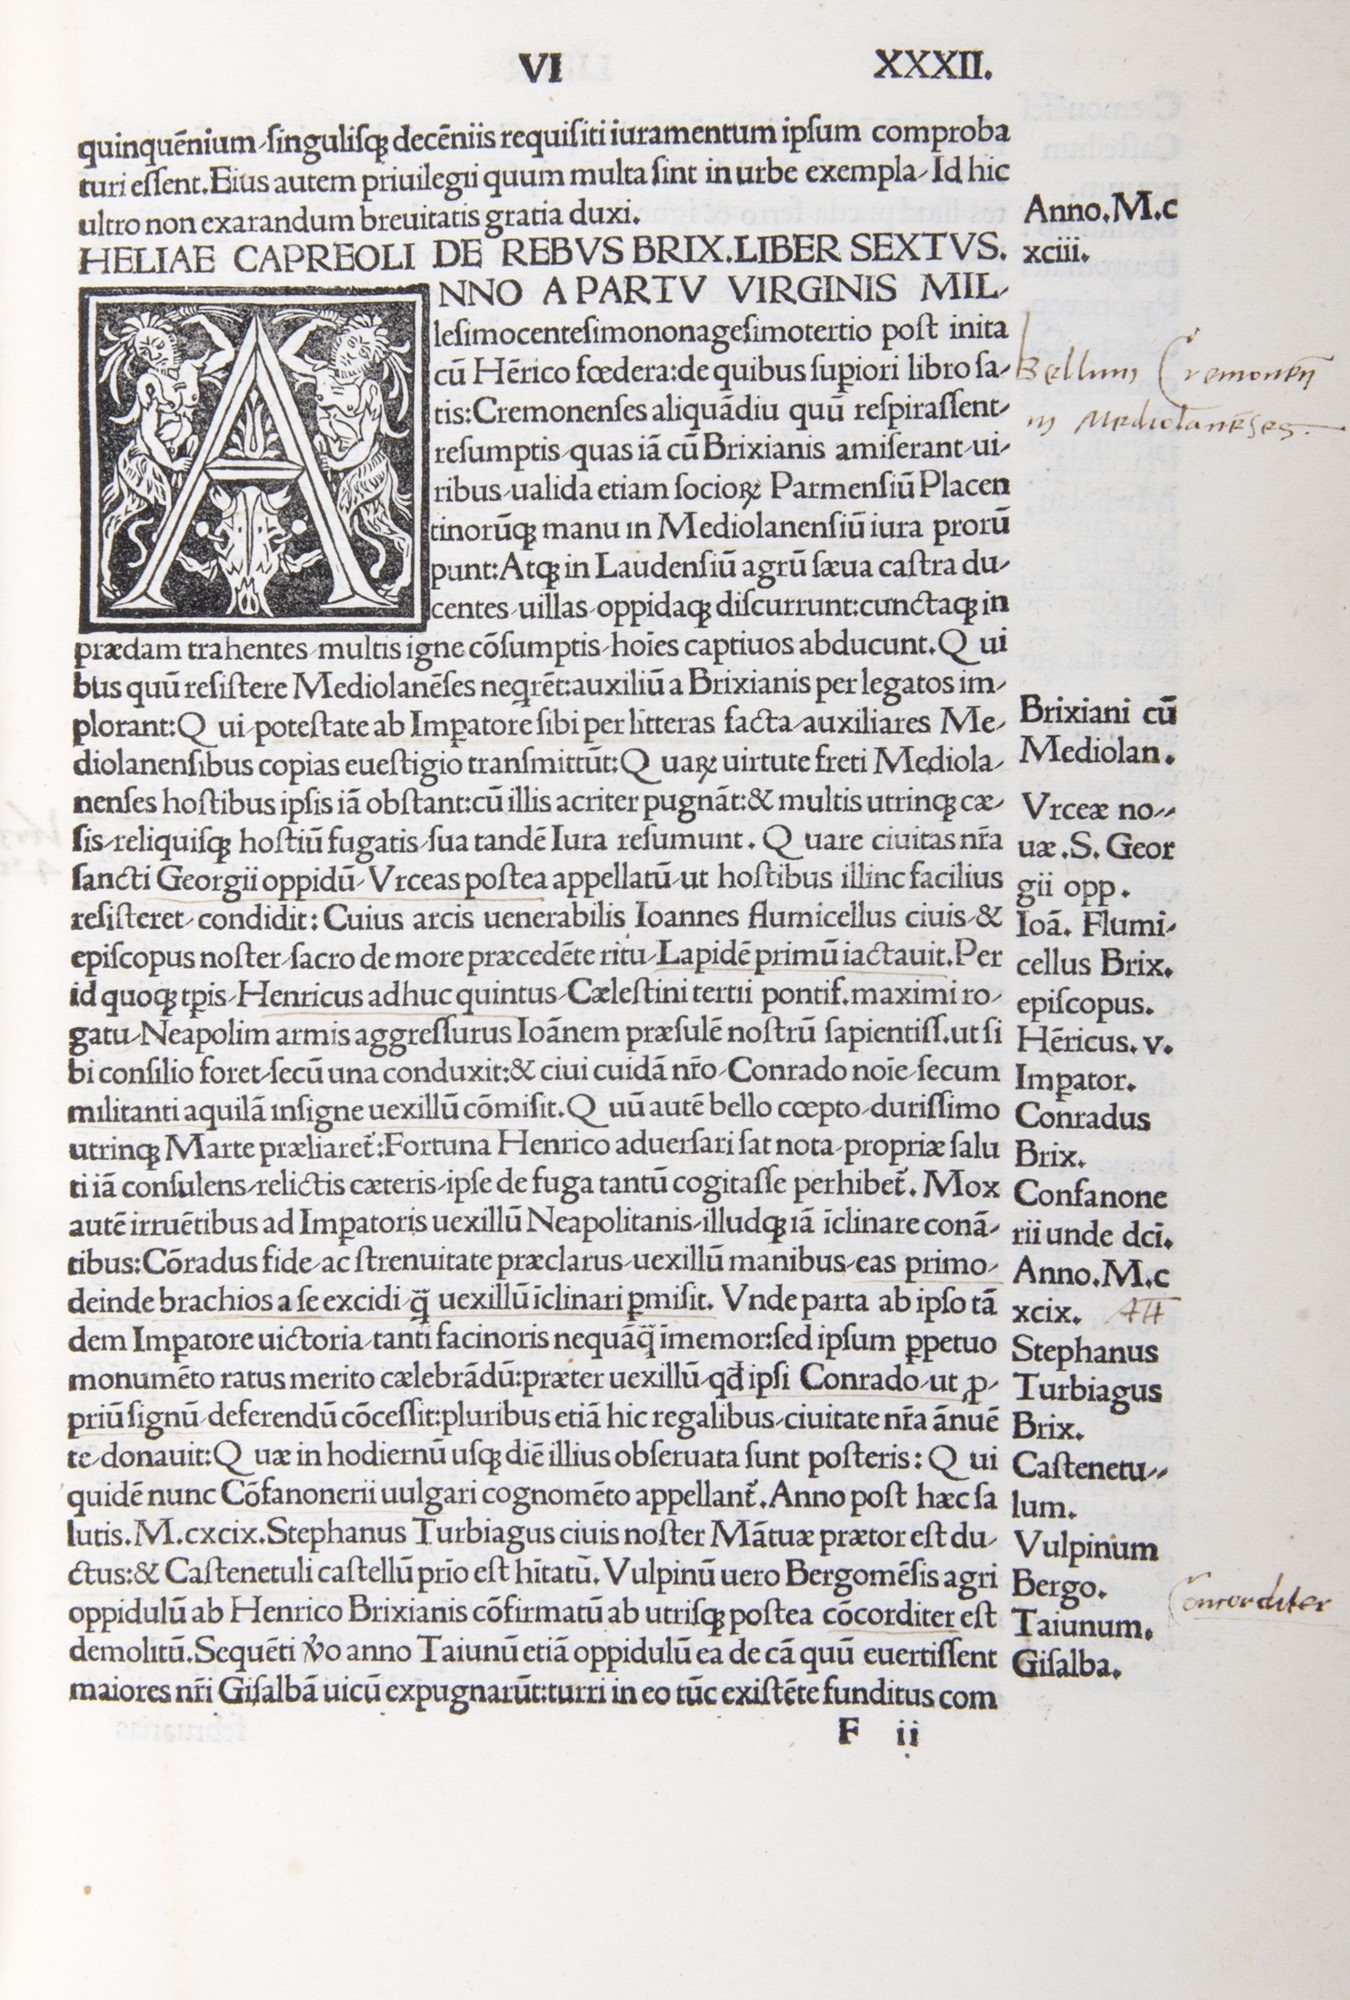 VI XXXII.
quinquēnium,singulisq; decēniis requisiti iuramentum ipsum comproba
turi essent.Eius autem priuilegii quum multa sint in urbe exempla, Id hic
ultro non exarandum breuitatis gratia duxi.
HELIAE CAPREOLI DE REBVS BRIX.LIBER SEXTVS.
ANNO A PARTV VIRGINIS MIL,
lesimocentesimononagesimotertio post inita
cū Hērico fœdera:de quibus supiori libro sa,
tis:Cremonenses aliquādiu quū respirassent,
resumptis,quas iā cū Brixianis amiserant,ui,
ribus,ualida etiam socioꝝ Parmensiū Placen
tinorūq; manu in Mediolanensiū iura prorū
punt:Atq; in Laudensiū agrū sæua castra du,
centes,uillas,oppidaq; discurrunt:cunctaq; in
prædam trahentes,multis igne cōsumptis,hoīes captiuos abducunt.Q ui
bus quū resistere Mediolanēses neqrēt:auxiliū a Brixianis per legatos im,
plorant:Q ui,potestate ab Impatore sibi per litteras facta,auxiliares Me,
diolanensibus copias euestigio transmittūt:Q uaꝝ uirtute freti Mediola,
nenses hostibus ipsis iā obstant:cū illis acriter pugnāt:& multis utrinq; cæ,
sis,reliquisq; hostiū fugatis,sua tandē Iura resumunt. Q uare ciuitas nr̄a
sancti Georgii oppidū, Vrceas postea appellatū,ut hostibus illinc facilius
resisteret,condidit: Cuius arcis uenerabilis Ioannes flumicellus ciuis,&
episcopus noster,sacro de more præcedēte ritu,Lapidē primū iactauit.Per
id quoq; tp̄is,Henricus adhuc quintus,Cælestini tertii pontif.maximi ro,
gatu,Neapolim armis aggressurus Ioānem præsulē nostrū sapientiss.ut si
bi consilio foret,secū una conduxit:& ciui cuidā nr̄o,Conrado noīe,secum
militanti aquilā insigne uexillū cōmisit.Q uū autē bello cœpto,durissimo
utrinq; Marte præliaret̄:Fortuna Henrico aduersari sat nota,propriæ salu
ti iā consulens,relictis cæteris,ipse de fuga tantū cogitasse perhibet̄. Mox
autē irruētibus ad Impatoris uexillū Neapolitanis,illudq; iā īclinare conā,
tibus:Cōradus fide,ac strenuitate præclarus,uexillū manibus,eas primo,
deinde brachios a se excidi,q̄ uexillū īclinari pmisit. Vnde parta ab ipso tā
dem Impatore uictoria,tanti facinoris nequāq̄ īmemor:sed ipsum ppetuo
monumēto ratus merito cælebrādū:præter uexillū,qd̄ ipsi Conrado,ut p,
priū signū,deferendū cōcessit:pluribus etiā hic regalibus,ciuitate nr̄a ānuē
te,donauit:Q uæ in hodiernū usq; diē illius obseruata sunt posteris: Q ui
quidē nunc Cōfanonerii uulgari cognomēto appellant̄.Anno post hæc sa
lutis.M.cxcix.Stephanus Turbiagus ciuis noster Mātuæ prætor est du,
ctus:& Castenetuli castellū prīo est hītatū. Vulpinū uero Bergomēsis agri
oppidulū ab Henrico Brixianis cōfirmatū ab utrisq; postea cōcorditer est
demolitū.Sequēti v̄o anno Taiunū etiā oppidulū ea de cā quū euertissent
maiores nr̄i Gisalbā uicū expugnarūt:turri in eo tūc existēte funditus com
F ii
Anno.M.c
xciii.
Bellum Cremonēn̄
in Mediolanēses.
Brixiani cū
Mediolan.
Vrceæ no,,
uæ.S.Geor
gii opp.
Ioā. Flumi,
cellus Brix.
episcopus.
Hēricus.v.
Impator.
Conradus
Brix.
Confanone
rii unde dc̄i.
Anno.M.c
xcix.
Stephanus
Turbiagus
Brix.
Castenetu,,
lum.
Vulpinum
Bergo.
Taiunum.
Gisalba.
Concorditer